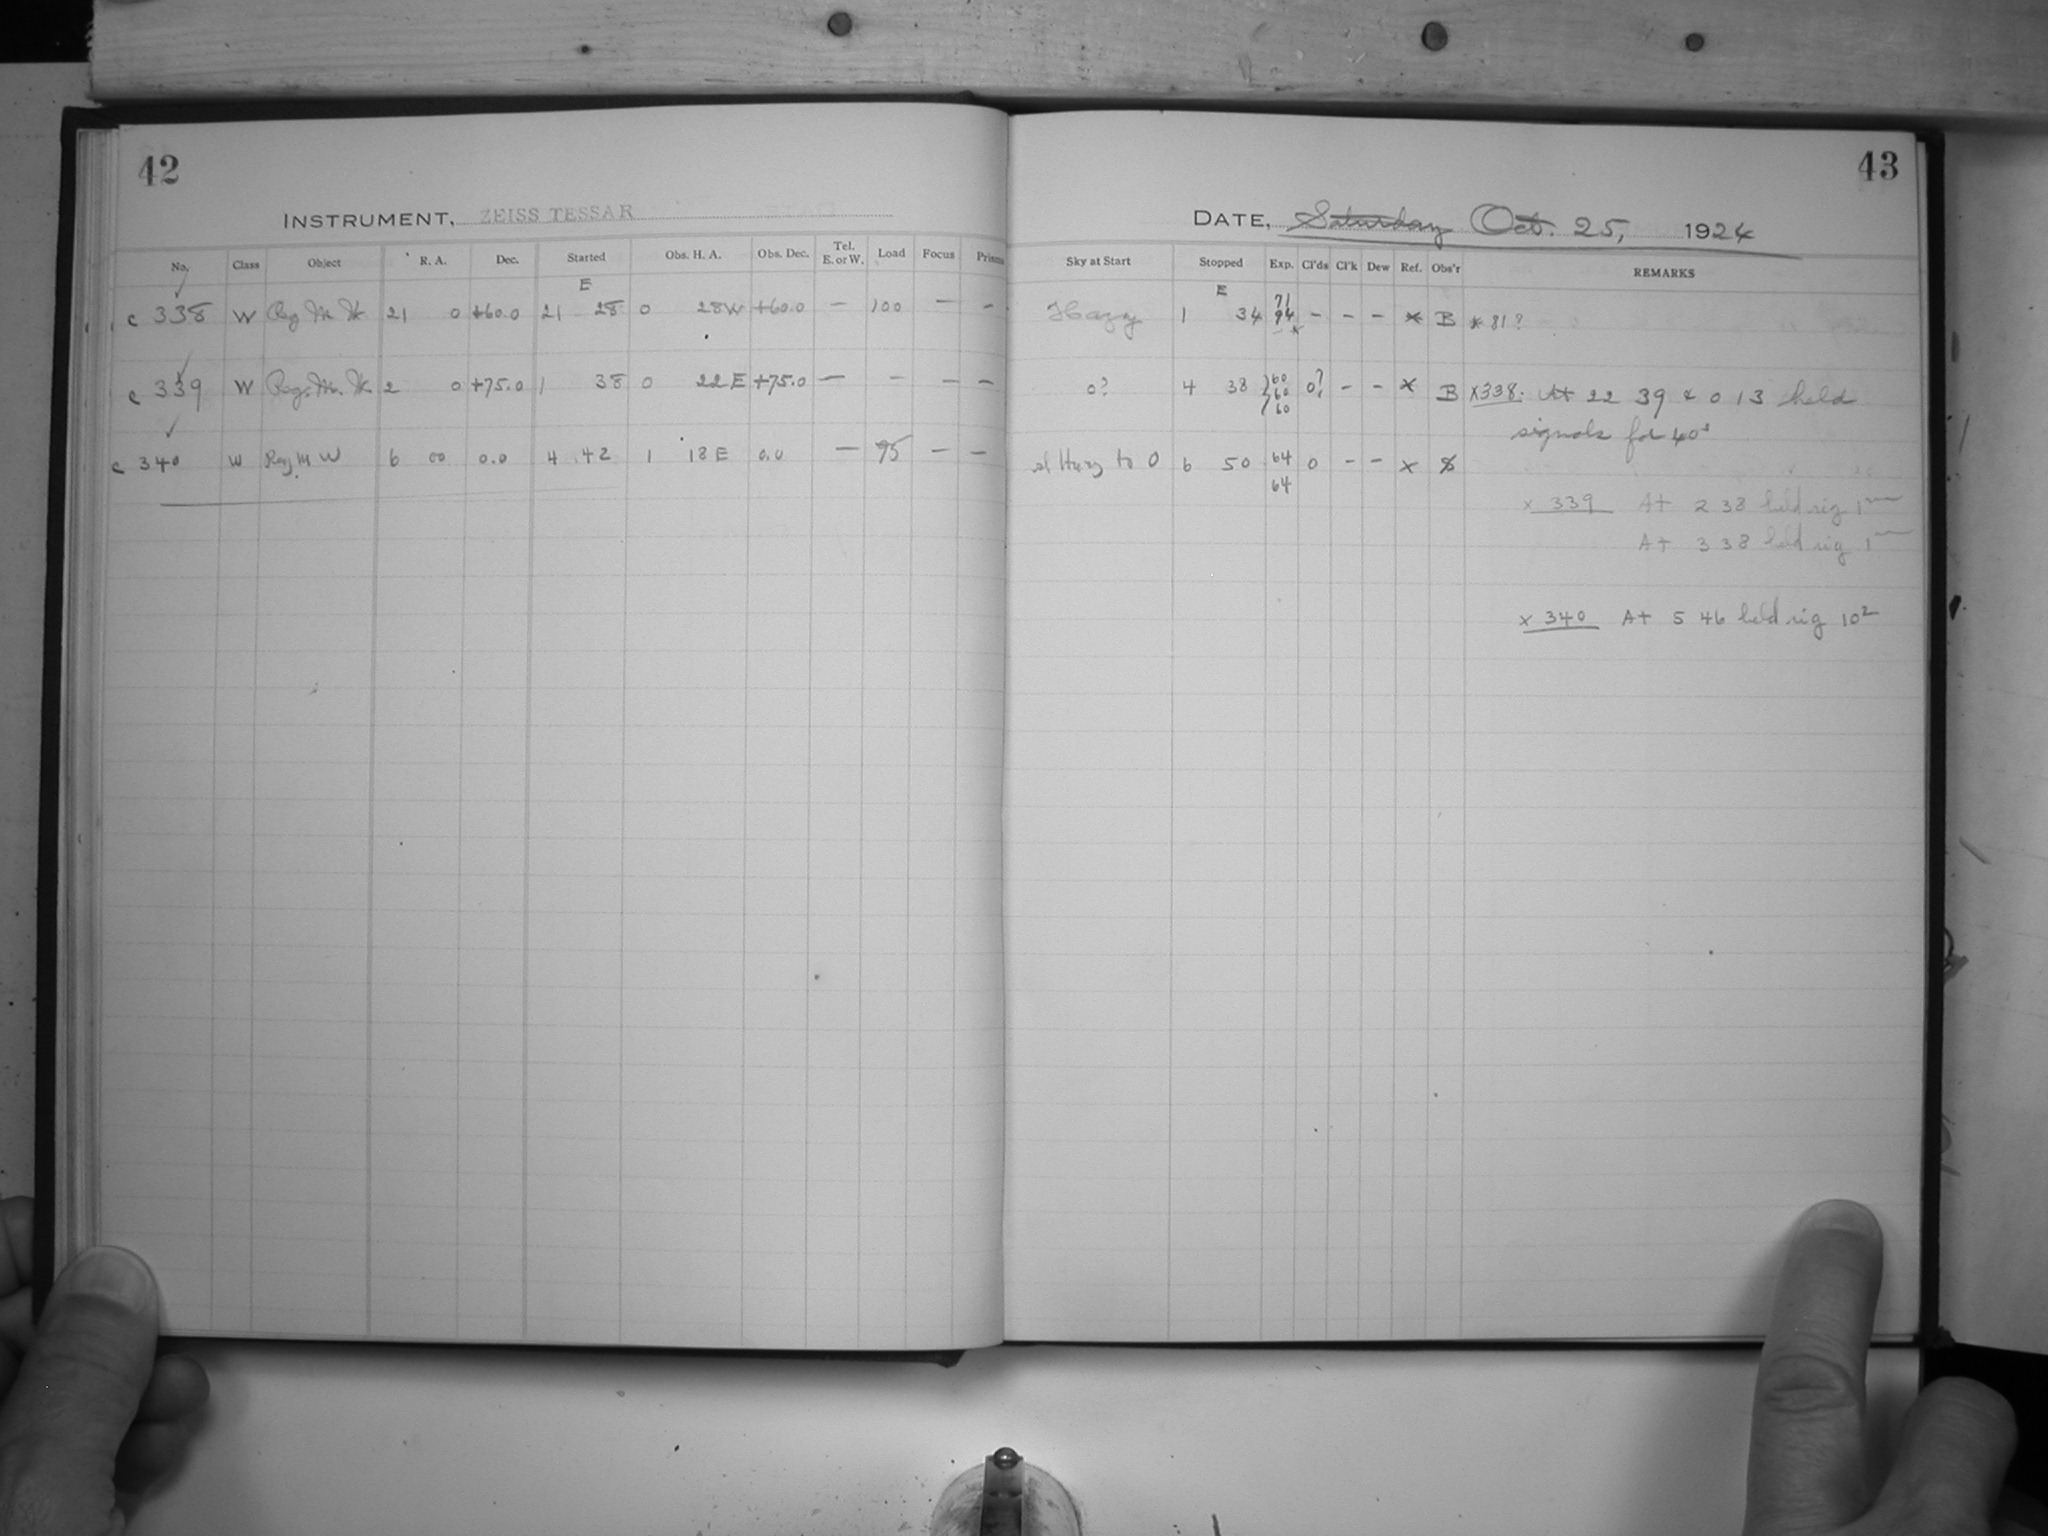 42
INSTRUMENT, ZEISS TESSAR
No. Class Object R. A. Dec. Started Obs. H. A. Obs. Dec. Tel. E. or W. Load Focus Prisms
E
c 338 W Reg. M. W. 21 0 +60.0 21 28 0 28W +60.0 — 100 — —
c 339 W Reg. M. W. 2 0 +75.0 1 38 0 22 E +75.0 — — — —
c 340 W Reg M W 6 00 0.0 4 42 1 18 E 0.0 — 95 — —
43
DATE, Saturday Oct. 25, 1924
Sky at Start Stopped Exp. Cl'ds Cl'k Dew Ref. Obs'r REMARKS
E 71
Hazy 1 34 94 — — — * B * 81?
0? 4 38 60 0? — — x B x338: At 22 39 & 0 13 held
60
60
signals for 40s
sl Hazy to 0 6 50 64 0 — — x
64
x 339 At 2 38 held sig 1m
At 3 38 held sig 1m
x 340 At 5 46 held sig 10